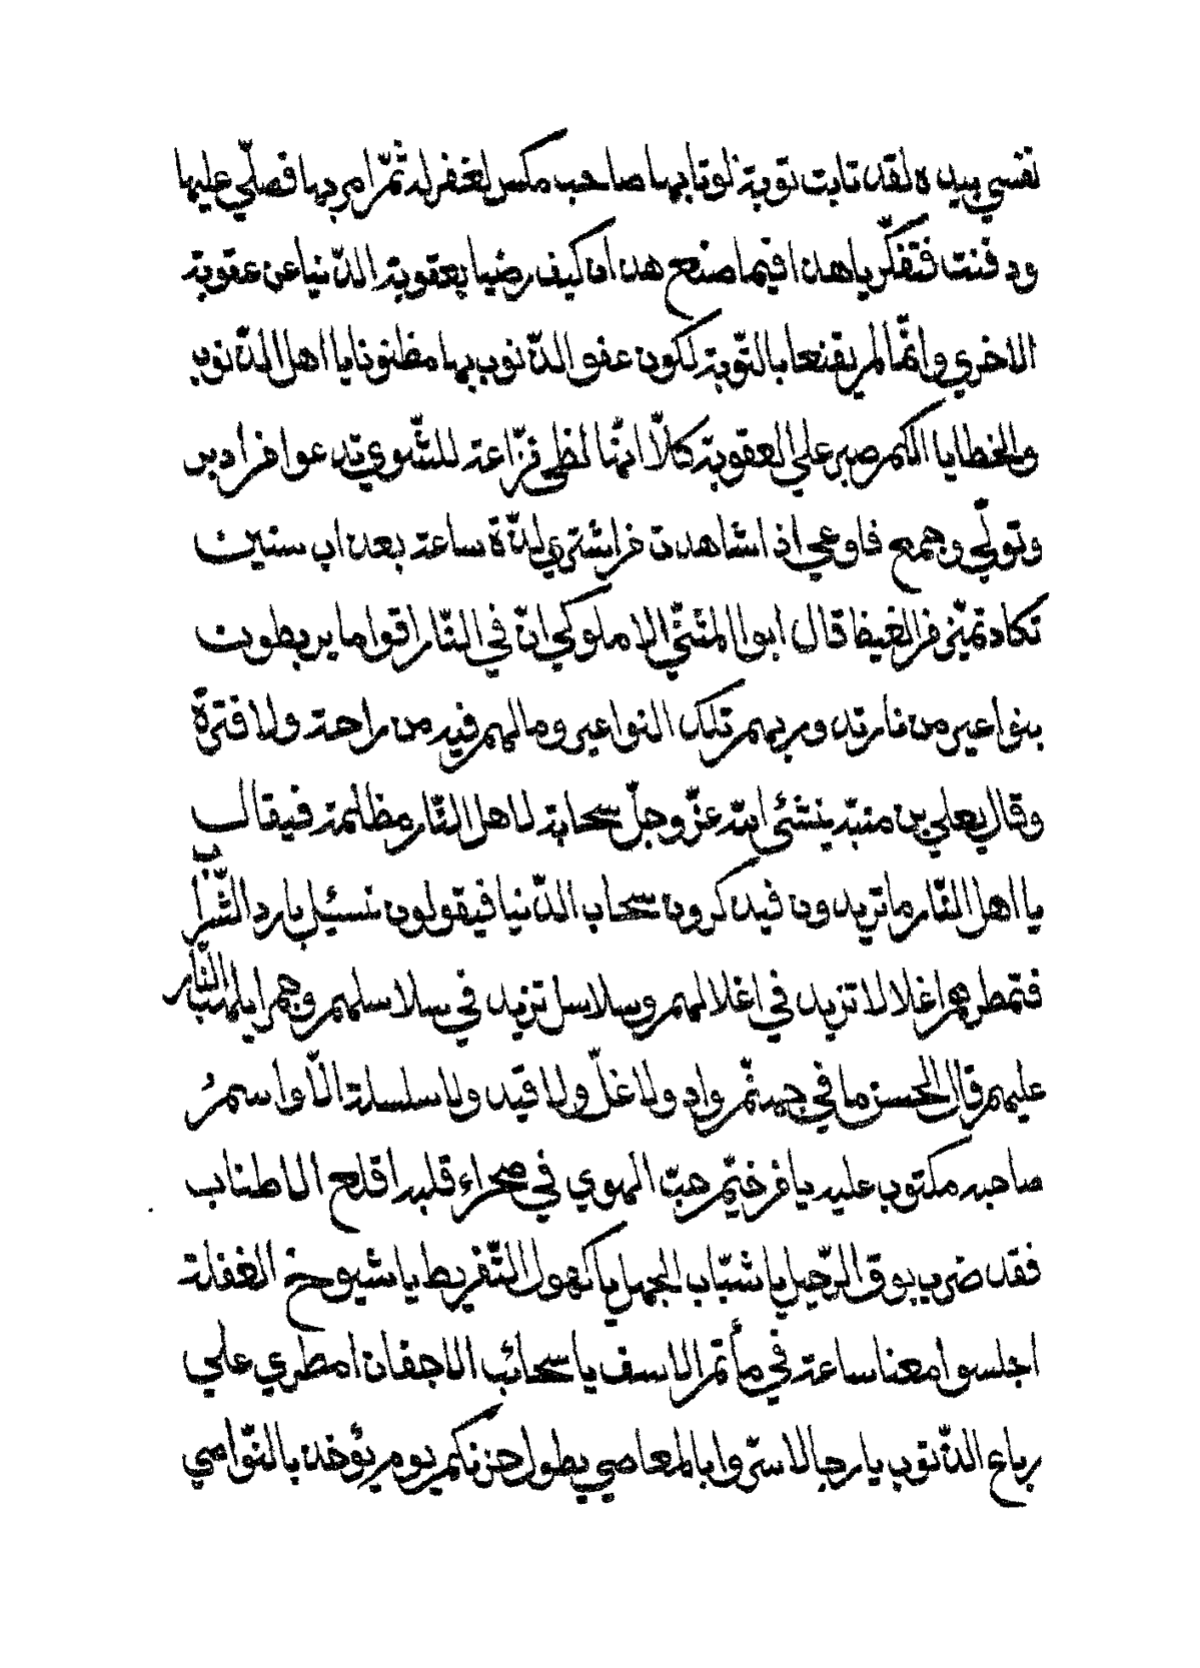 نفسي بيده لقد تابت توبة لو تابها صاحب مكس لغفر له ثمّ امر بها فصلّي عليها
ودفنت فتفكّر يا هذا فيما صنع هذان كيف رضيا بعقوبة الدّنيا عن عقوبة
الاخري وانّما لم يقنعا بالتّوبة لكون عفو الذّنوب بها مظنونا يا اهل الذّنوب
والخطايا الكم صبر علي العقوبة كلّا انّها لظي نزّاعة للشّوي تدعوا من ادبر
وتولّي وجمع فاوعي اذا شاهدت من اشتري لذّة ساعة بعذاب سنين
تكاد تميّز من الغيظ قال ابوا المثنّي الاملوكي انّ في النّار اقواما يربطون
بنواعير من نار تدور بهم تلك النواعير وما لهم فيه من راحة ولا فترة
وقال يعلي بن منبّه ينشئ الله عزّ وجلّ سحابة لاهل النّار مظلمة فيقال
يا اهل النّار ما تريدون فيذكرون سحاب الدّنيا فيقولون نسئل بارد الشّراب
فتمطرهم اغلالا تزيد في اغلالهم وسلاسل تزيد في سلاسلهم وجمرا يلهب النّار
عليهم قال الحسن ما في جهنّم واد ولا غلّ ولا قيد ولا سلسلة الّا واسمُ
صاحبه مكتوب عليه يا من خيّم حبّ الهوي في صحراء قلبه اقلع الاطناب
فقد ضرب بوق الرّحيل يا شبّاب الجهل يا كهول التّفريط يا شيوخ الغفلة
اجلسوا معنا ساعة في مأتم الاسف يا سحائب الاجفان امطري علي
رباع الذّنوب يا رجالا سرّوا بالمعاصي يطول حزنكم يوم يؤخذ بالنّواصي